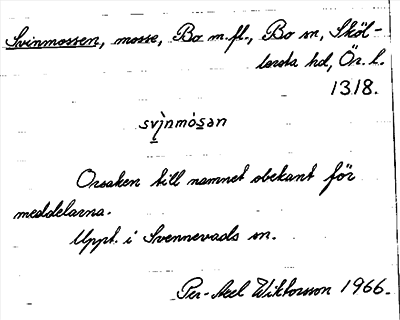 Svinmossen, mosse, Bo m.fl., Bo sn, Sköl-
lersta hd, Ör. l.
1318.
svìnmósan
Orsaken till namnet obekant för
meddelarna.
Uppt. i Svennevads sn.
Per-Axel Wiktorsson 1966.